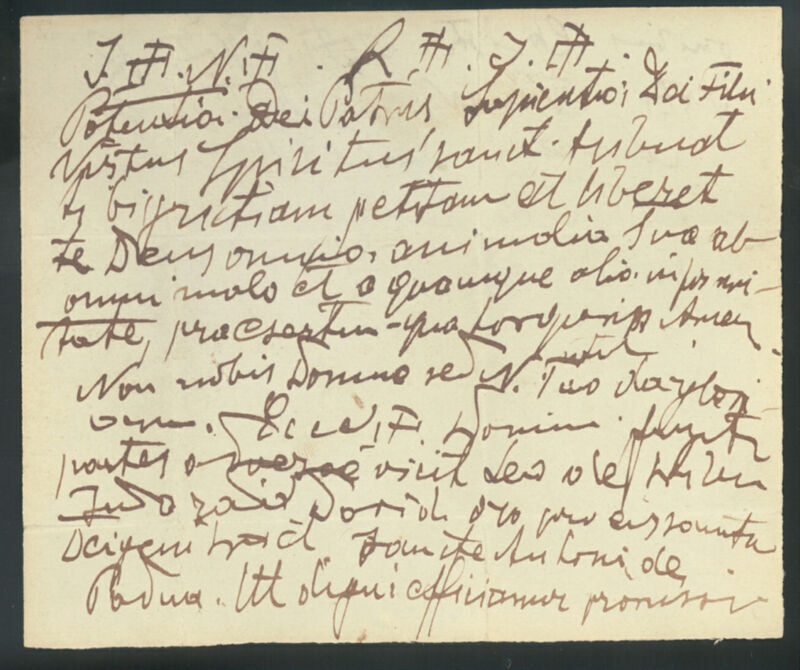 J. ✠. N. ✠. R. ✠. J. ✠.
Potentia Dei Patris Sapientia Dei Filii
Virtus Spiritus sanct. tribuat
ti bi gratiam petitam et liberet
te Deus omnia animalia Sua ab
omni malo et a quamque alia infirmi-
tate, praesertim qua torqueris Amen
Non nobis Domine sed N. Tuo da glori-
am. Ecce ✠ Domini fugite
partes adversae vicit Leo de tribu
Juda radix David ora pro eis sancta
Dei genitrix. Sancte Antoni de
Padua. Ut digni efficiamur promissi